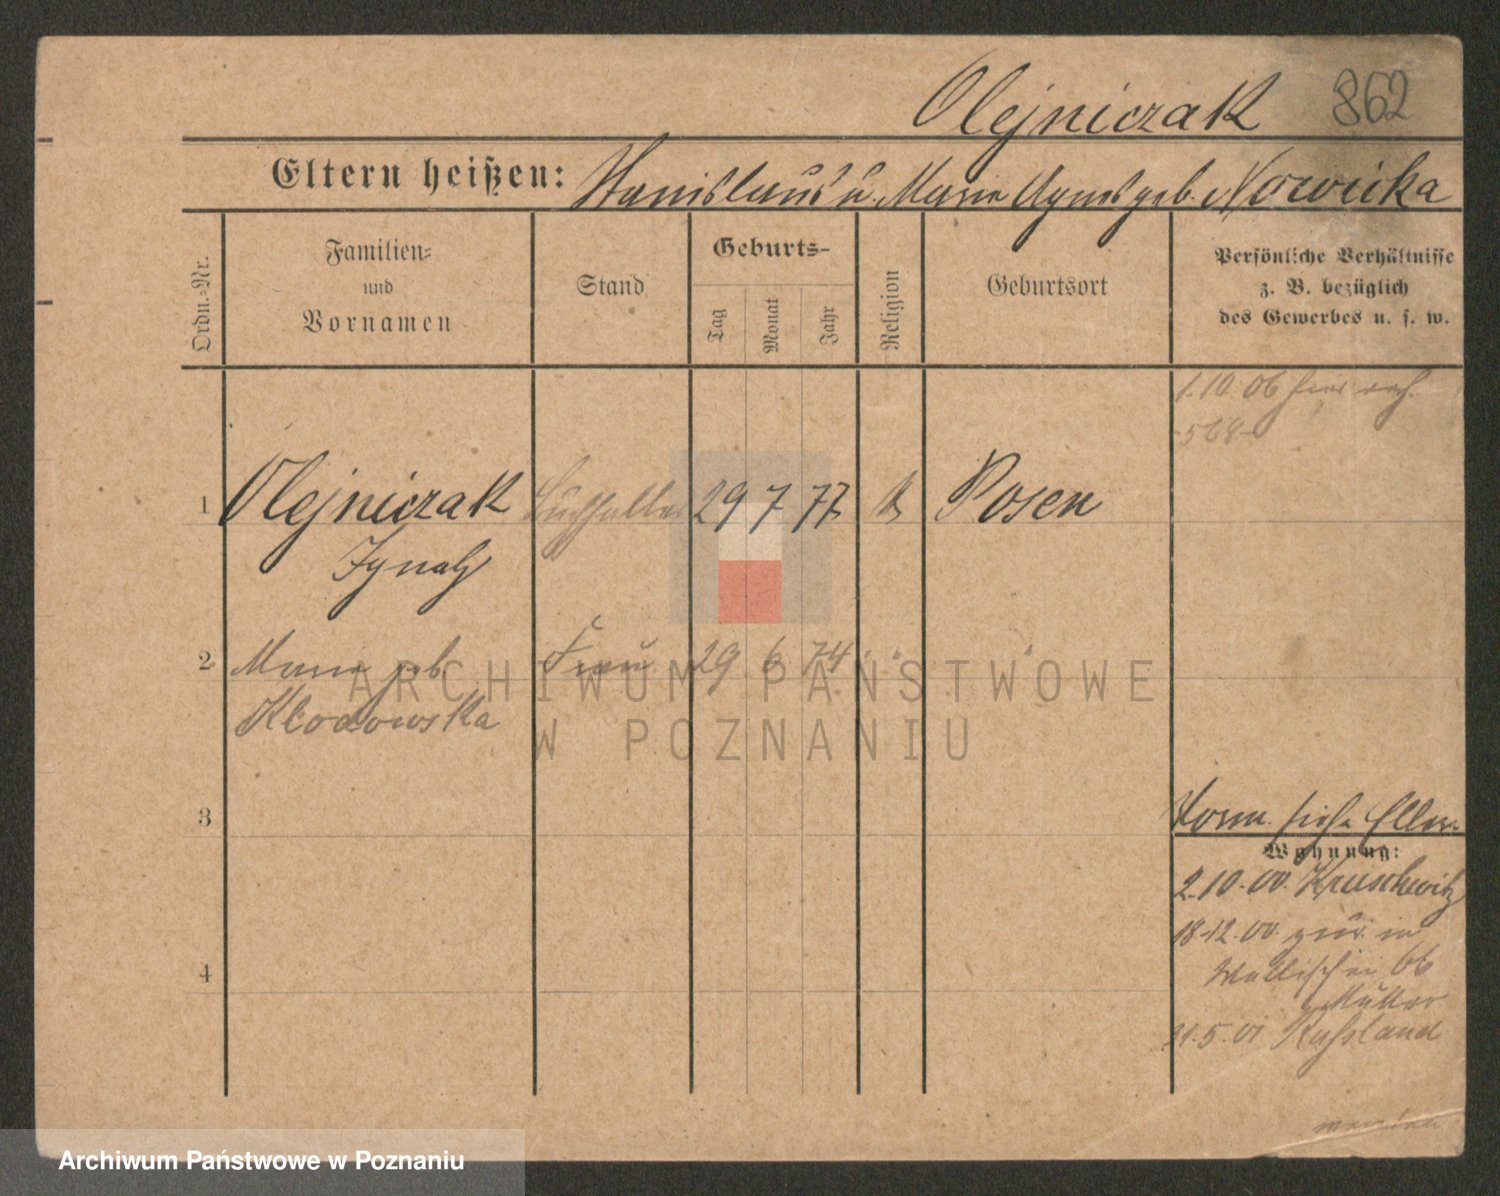 Olejniczak 862
Eltern heißen: Stanislaus u. Marie Agnes geb. Nowicka
Ordn.-Nr.
Familien-
und
Vornamen
Stand
Geburts-
Tag
Monat
Jahr
Religion
Geburtsort
Persönliche Verhältnisse
z. B. bezüglich
des Gewerbes u. s. w.
1.10 06 hier
-568-
1 Olejniczak Buchhalter 29 7 77 k Posen
Ignatz
2 Marie geb. Frau 29 6 74 " "
Klodowska
ARCHIWUM PAŃSTWOWE
W POZNANIU
3
4
Vorm. siehe Eltern
Wohnung:
2.10.00. Kruschwitz
18.12.00. zur. in
Wallischei 66
Mutter
31.5.01 Russland
Archiwum Państwowe w Poznaniu